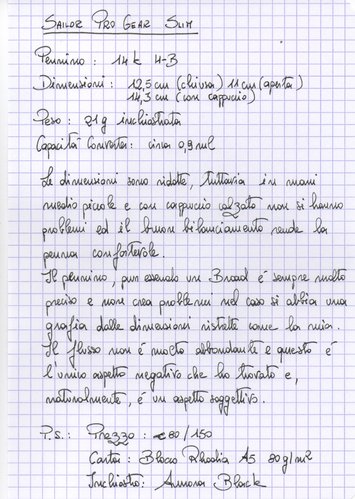 SAILOR PRO GEAR SLIM
Pennino: 14k 4-B
Dimensioni: 12,5 cm (chiusa) 11 cm (aperta)
14,3 cm (con cappuccio)
Peso: 21 g inchiostrata
Capacità Converter: circa 0,9 ml
Le dimensioni sono ridotte, tuttavia in mani
medio piccole e con cappuccio calzato non si hanno
problemi ed il buon bilanciamento rende la
penna confortevole.
Il pennino, pur essendo un Broad è sempre molto
preciso e non crea problemi nel caso si abbia una
grafia dalle dimensioni ristrette come la mia.
Il flusso non è molto abbondante e questo è
l'unico aspetto negativo che ho trovato e,
naturalmente, è un aspetto soggettivo.
P.S.: Prezzo: €80/150
Carta: Bloco Rhodia A5 80g/m²
Inchiostro: Aurora Black